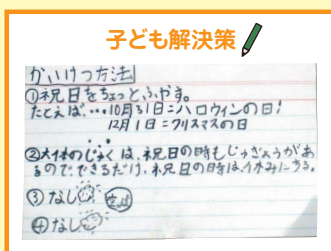 子ども解決策
かいけつ方法
①祝日をちょっとふやす。
たとえば…10月31日=ハロウィンの日!
12月1日=クリスマスの日
②大体のじゅくは、祝日の時もじゅぎょうがあ
るので、できるだけ、祝日の時は、休みにする。
③なし
④なし